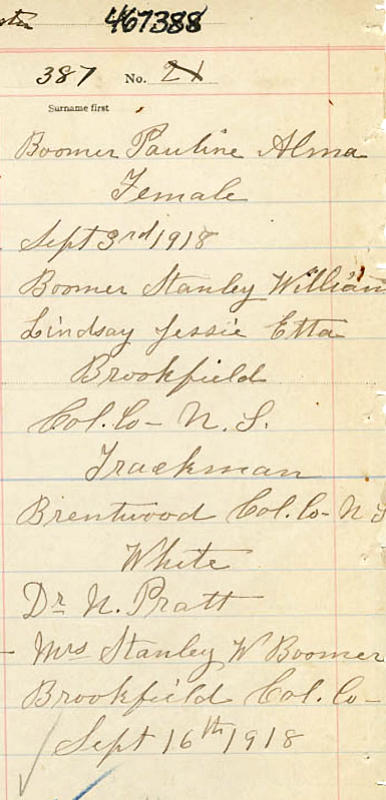 467388
387 No. 21
Surname first
Boomer Pauline Alma
Female
Sept 3rd 1918
Boomer Stanley William
Lindsay Jessie Etta
Brookfield
Col. Co- N. S.
Trackman
Brentwood Col. Co- N S
White
Dr N. Pratt
Mrs Stanley W Boomer
Brookfield Col. Co-
Sept 16th 1918